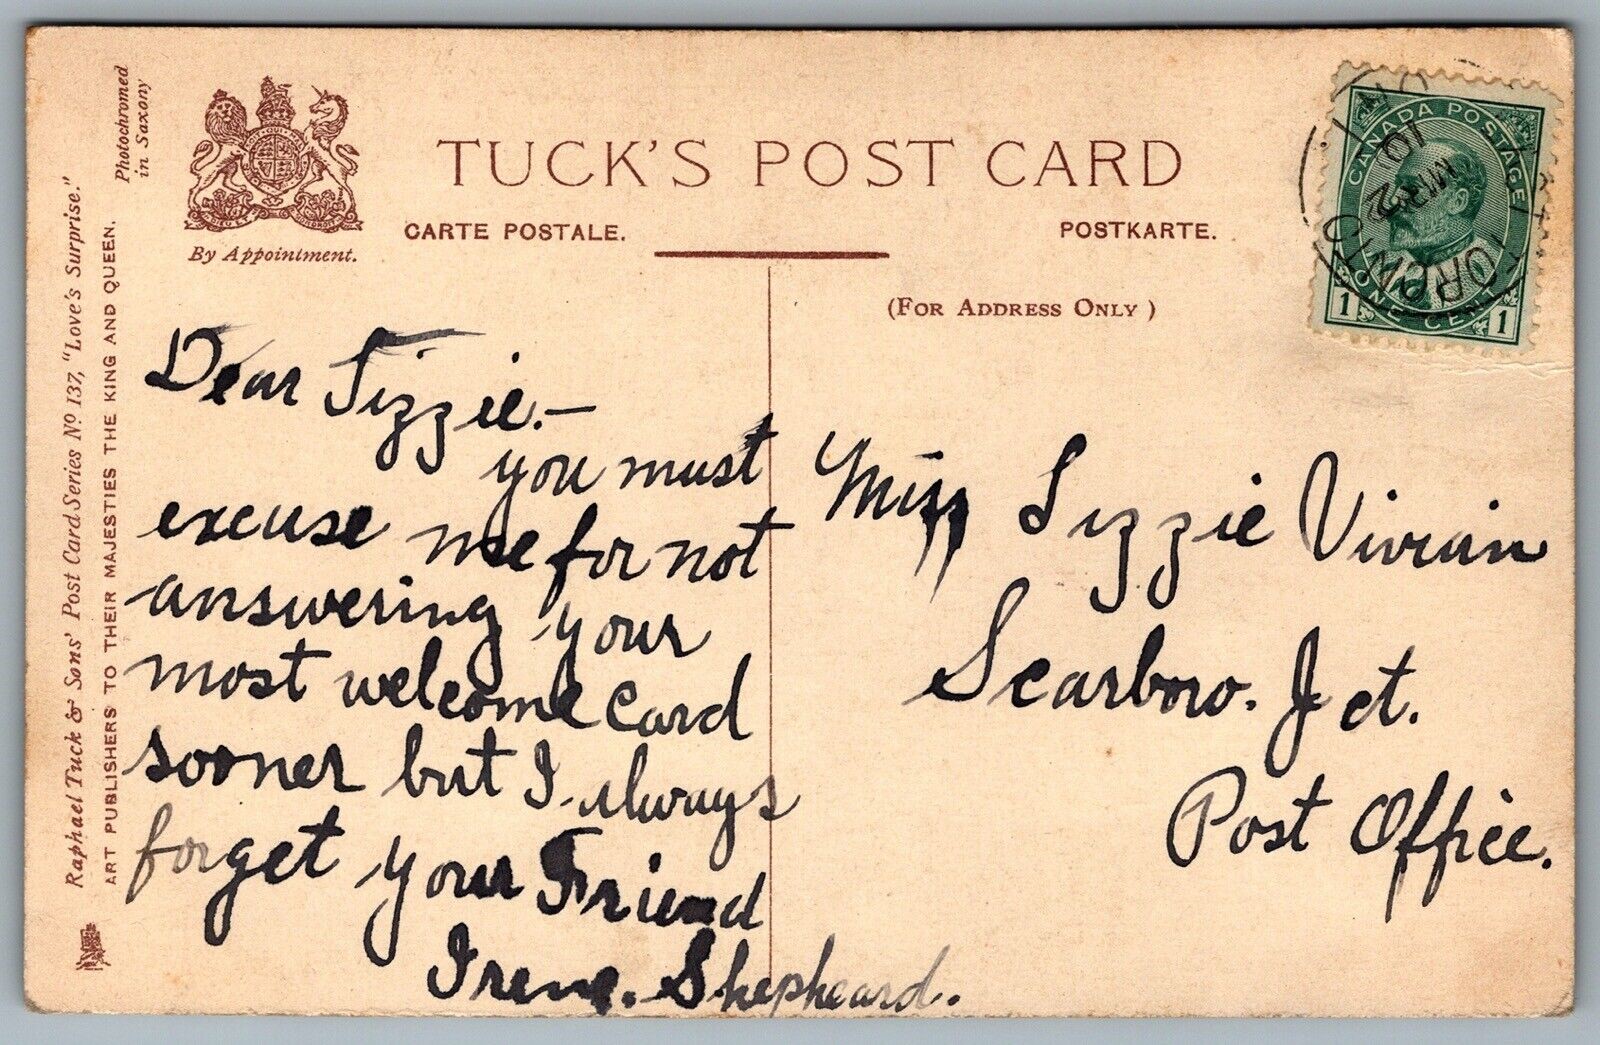 Photochromed
in Saxony
By Appointment.
TUCK'S POST CARD
CARTE POSTALE.
POSTKARTE.
(FOR ADDRESS ONLY)
CANADA POSTAGE
1 ONE CENT 1
TORONTO
MR 2
10
Raphael Tuck & Sons' Post Card Series No 137, "Love's Surprise."
ART PUBLISHERS TO THEIR MAJESTIES THE KING AND QUEEN.
Dear Lizzie.—
you must
excuse me for not
answering your
most welcome card
sooner but I always
forget your Friend
Irene. Shepheard.
Miss Lizzie Vivian
Scarboro. Jct.
Post Office.